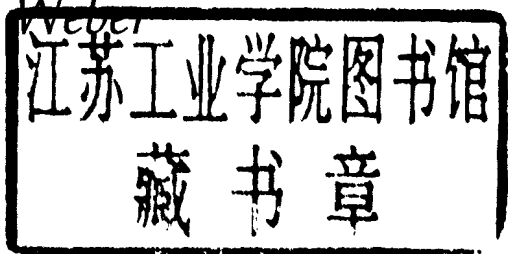 Weber
江苏工业学院图书馆
藏书章